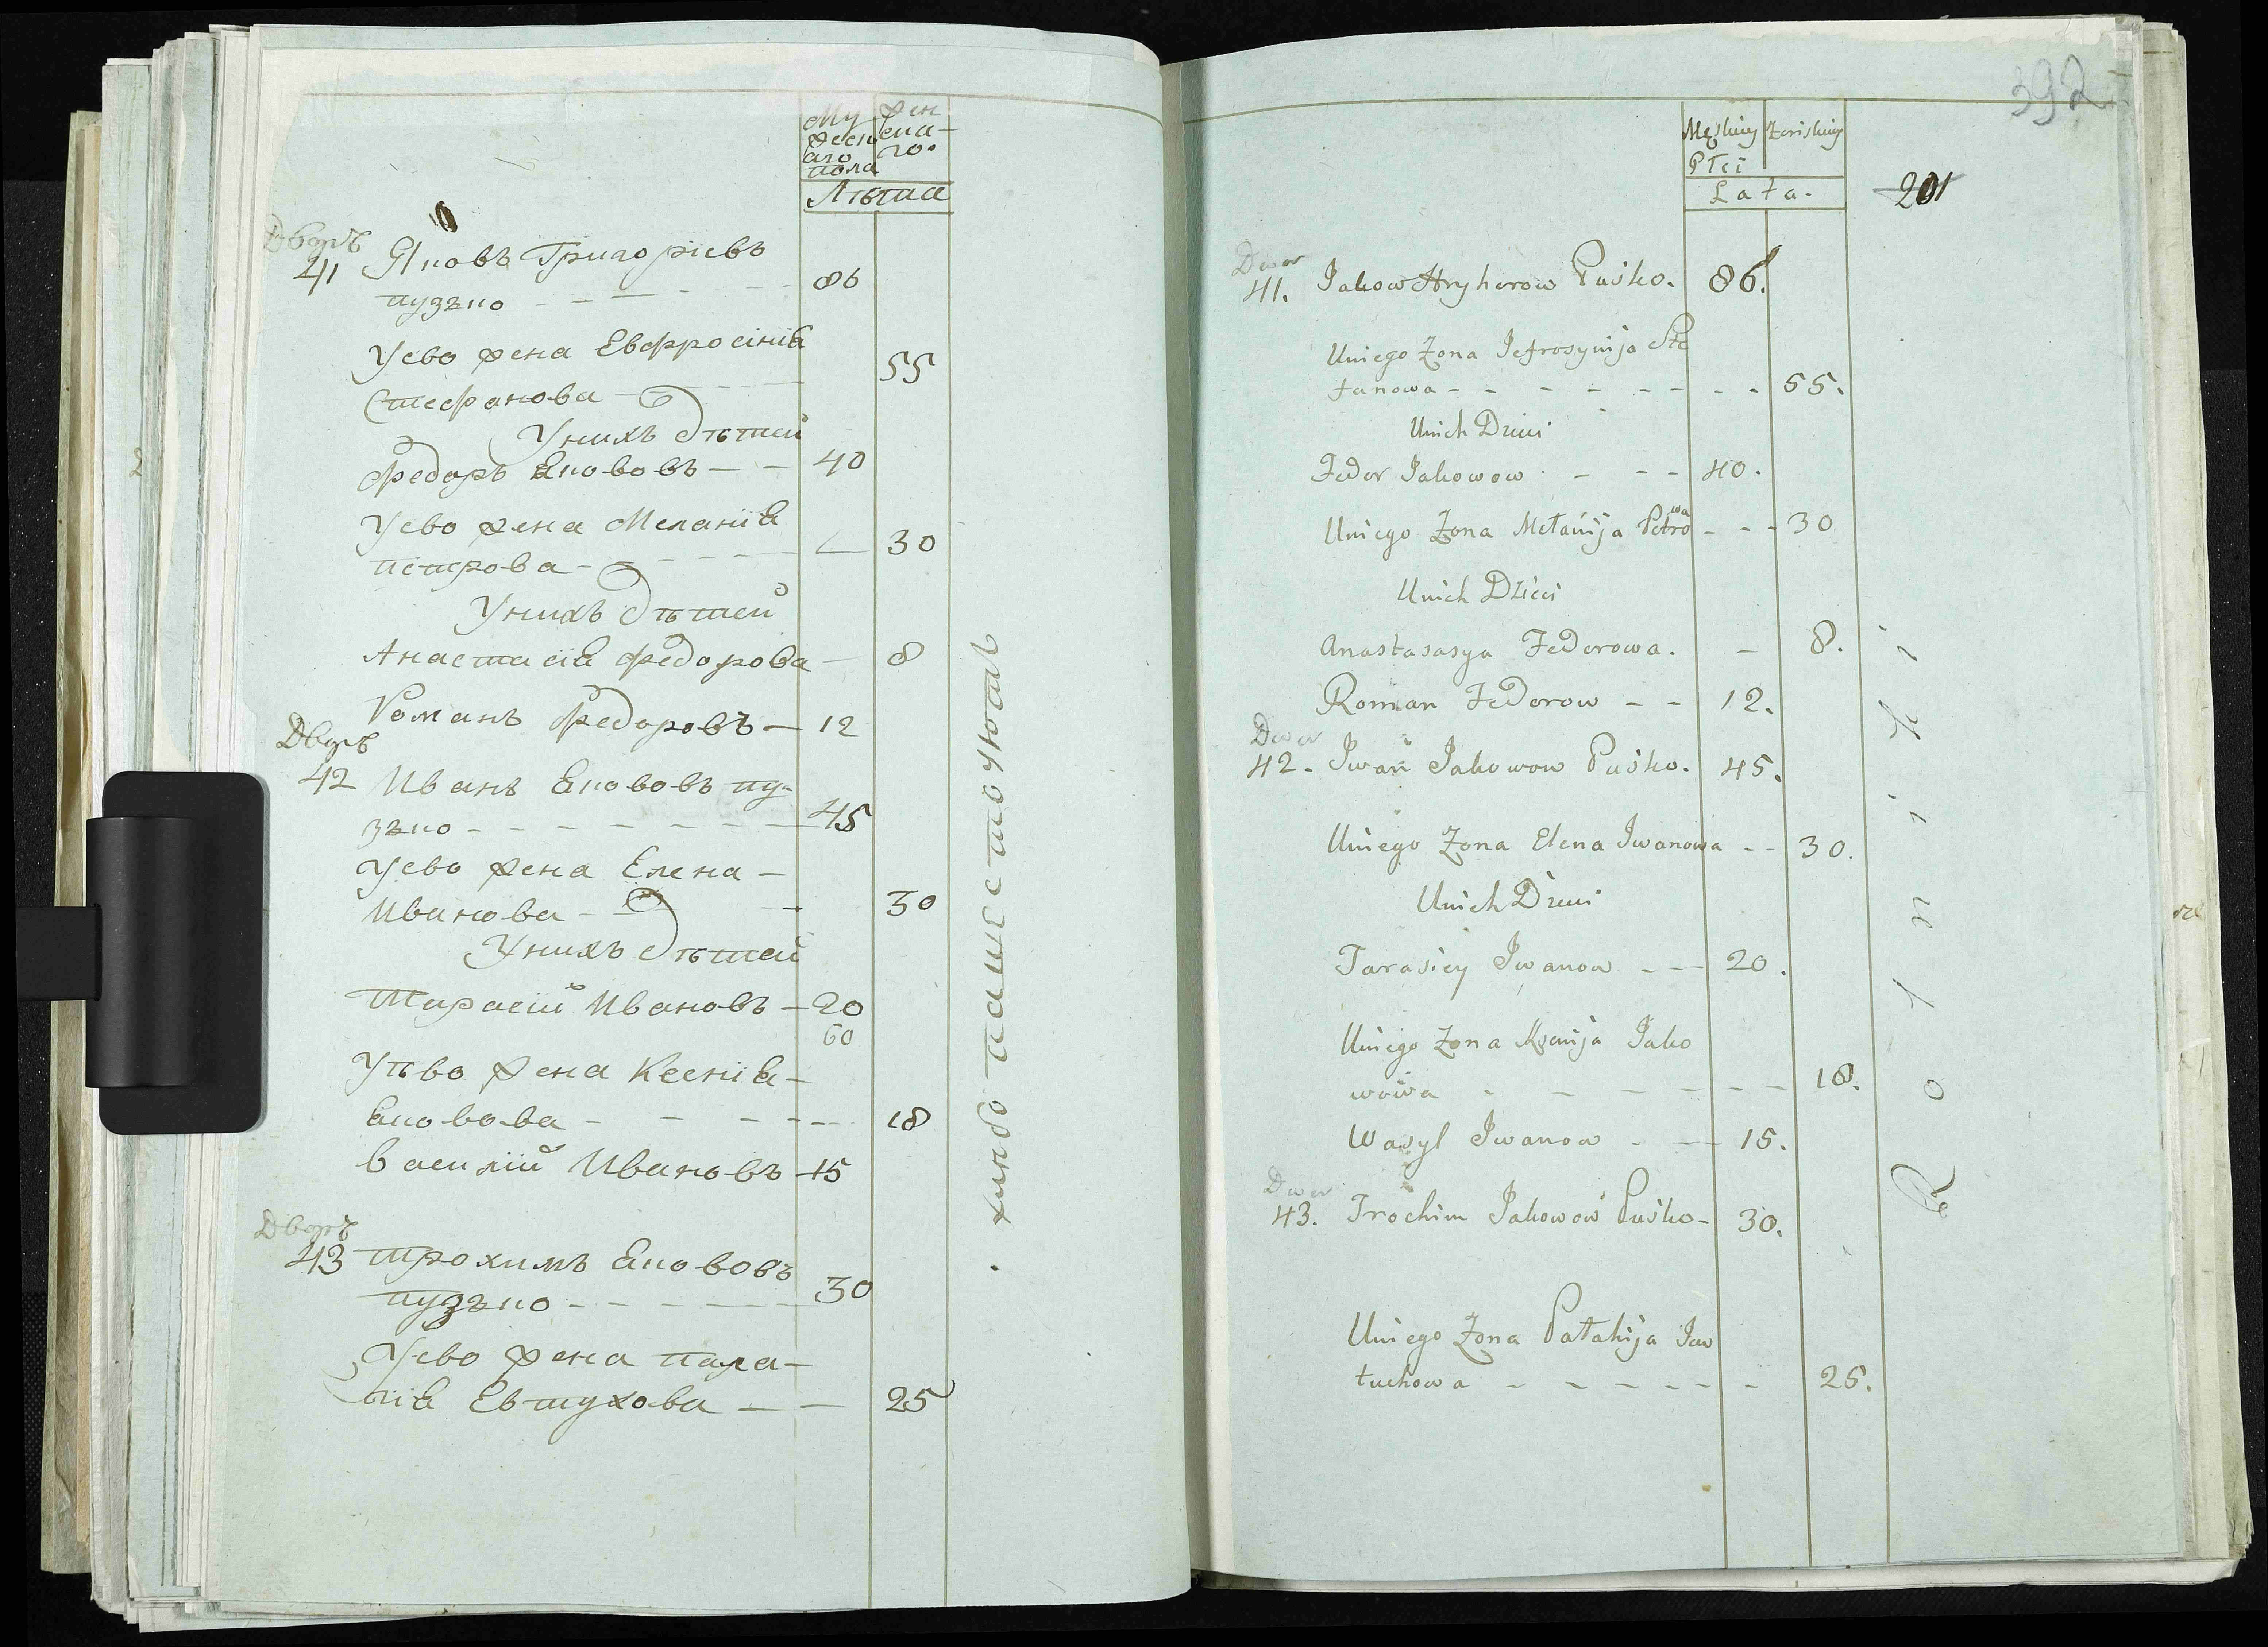 Мужескаго пола
Женскаго
Лѣта
Дворъ
41 Яковъ Григоріевъ
пузько - - - - 86
Уево жена Евфросінія
Стефанова - - - - 55
Унихъ дѣтей
Федоръ Якововъ - - 40
Уево жена Меланія
петрова - - - - 30
Унихъ дѣтей
Анастасія федорова - 8
Романъ федоровъ - 12
Дворъ
42 Иванъ Якововъ пу-
зько - - - - - - - 45
Уево жена Елена -
Иванова - - - 30
Унихъ дѣтей
Тарасій Ивановъ - 20
60
Уѣво жена Ксенія -
Яковова - - - - - 18
василій Ивановъ - 15
Дворъ
43 трохимъ Якововъ
пузько - - - - - - 30
Уево жена пала-
гія Евтухова - - 25
392
Męskiey Żeńskiey
Płci
Lata.
201
Dwor
41. Jakow Hryhorow Puśko. 86.
Uniego Żona Jefrosynija Ste
fanowa - - - - - - - - 55.
Unich Dzieci
Fedor Jakowow - - - 40.
Uniego Żona Mełanija Petrowa - - - 30
Unich Dzieci
Anastasasya Fedorowa. - 8.
Roman Fedorow - - 12.
Dwor
42. Jwan Jakowow Puśko. 45.
Uniego Żona Elena Jwanowa - - 30.
Unich Dzieci
Tarasiey Jwanow - - - 20.
Uniego Żona Ksenija Jako
wowa - - - - - - - 18.
Wasyl Jwanow - - - 15.
Dwor
43. Trochim Jakowow Puśko - 30.
Uniego Żona Pałahija Jew
tuchowa - - - - - - 25.